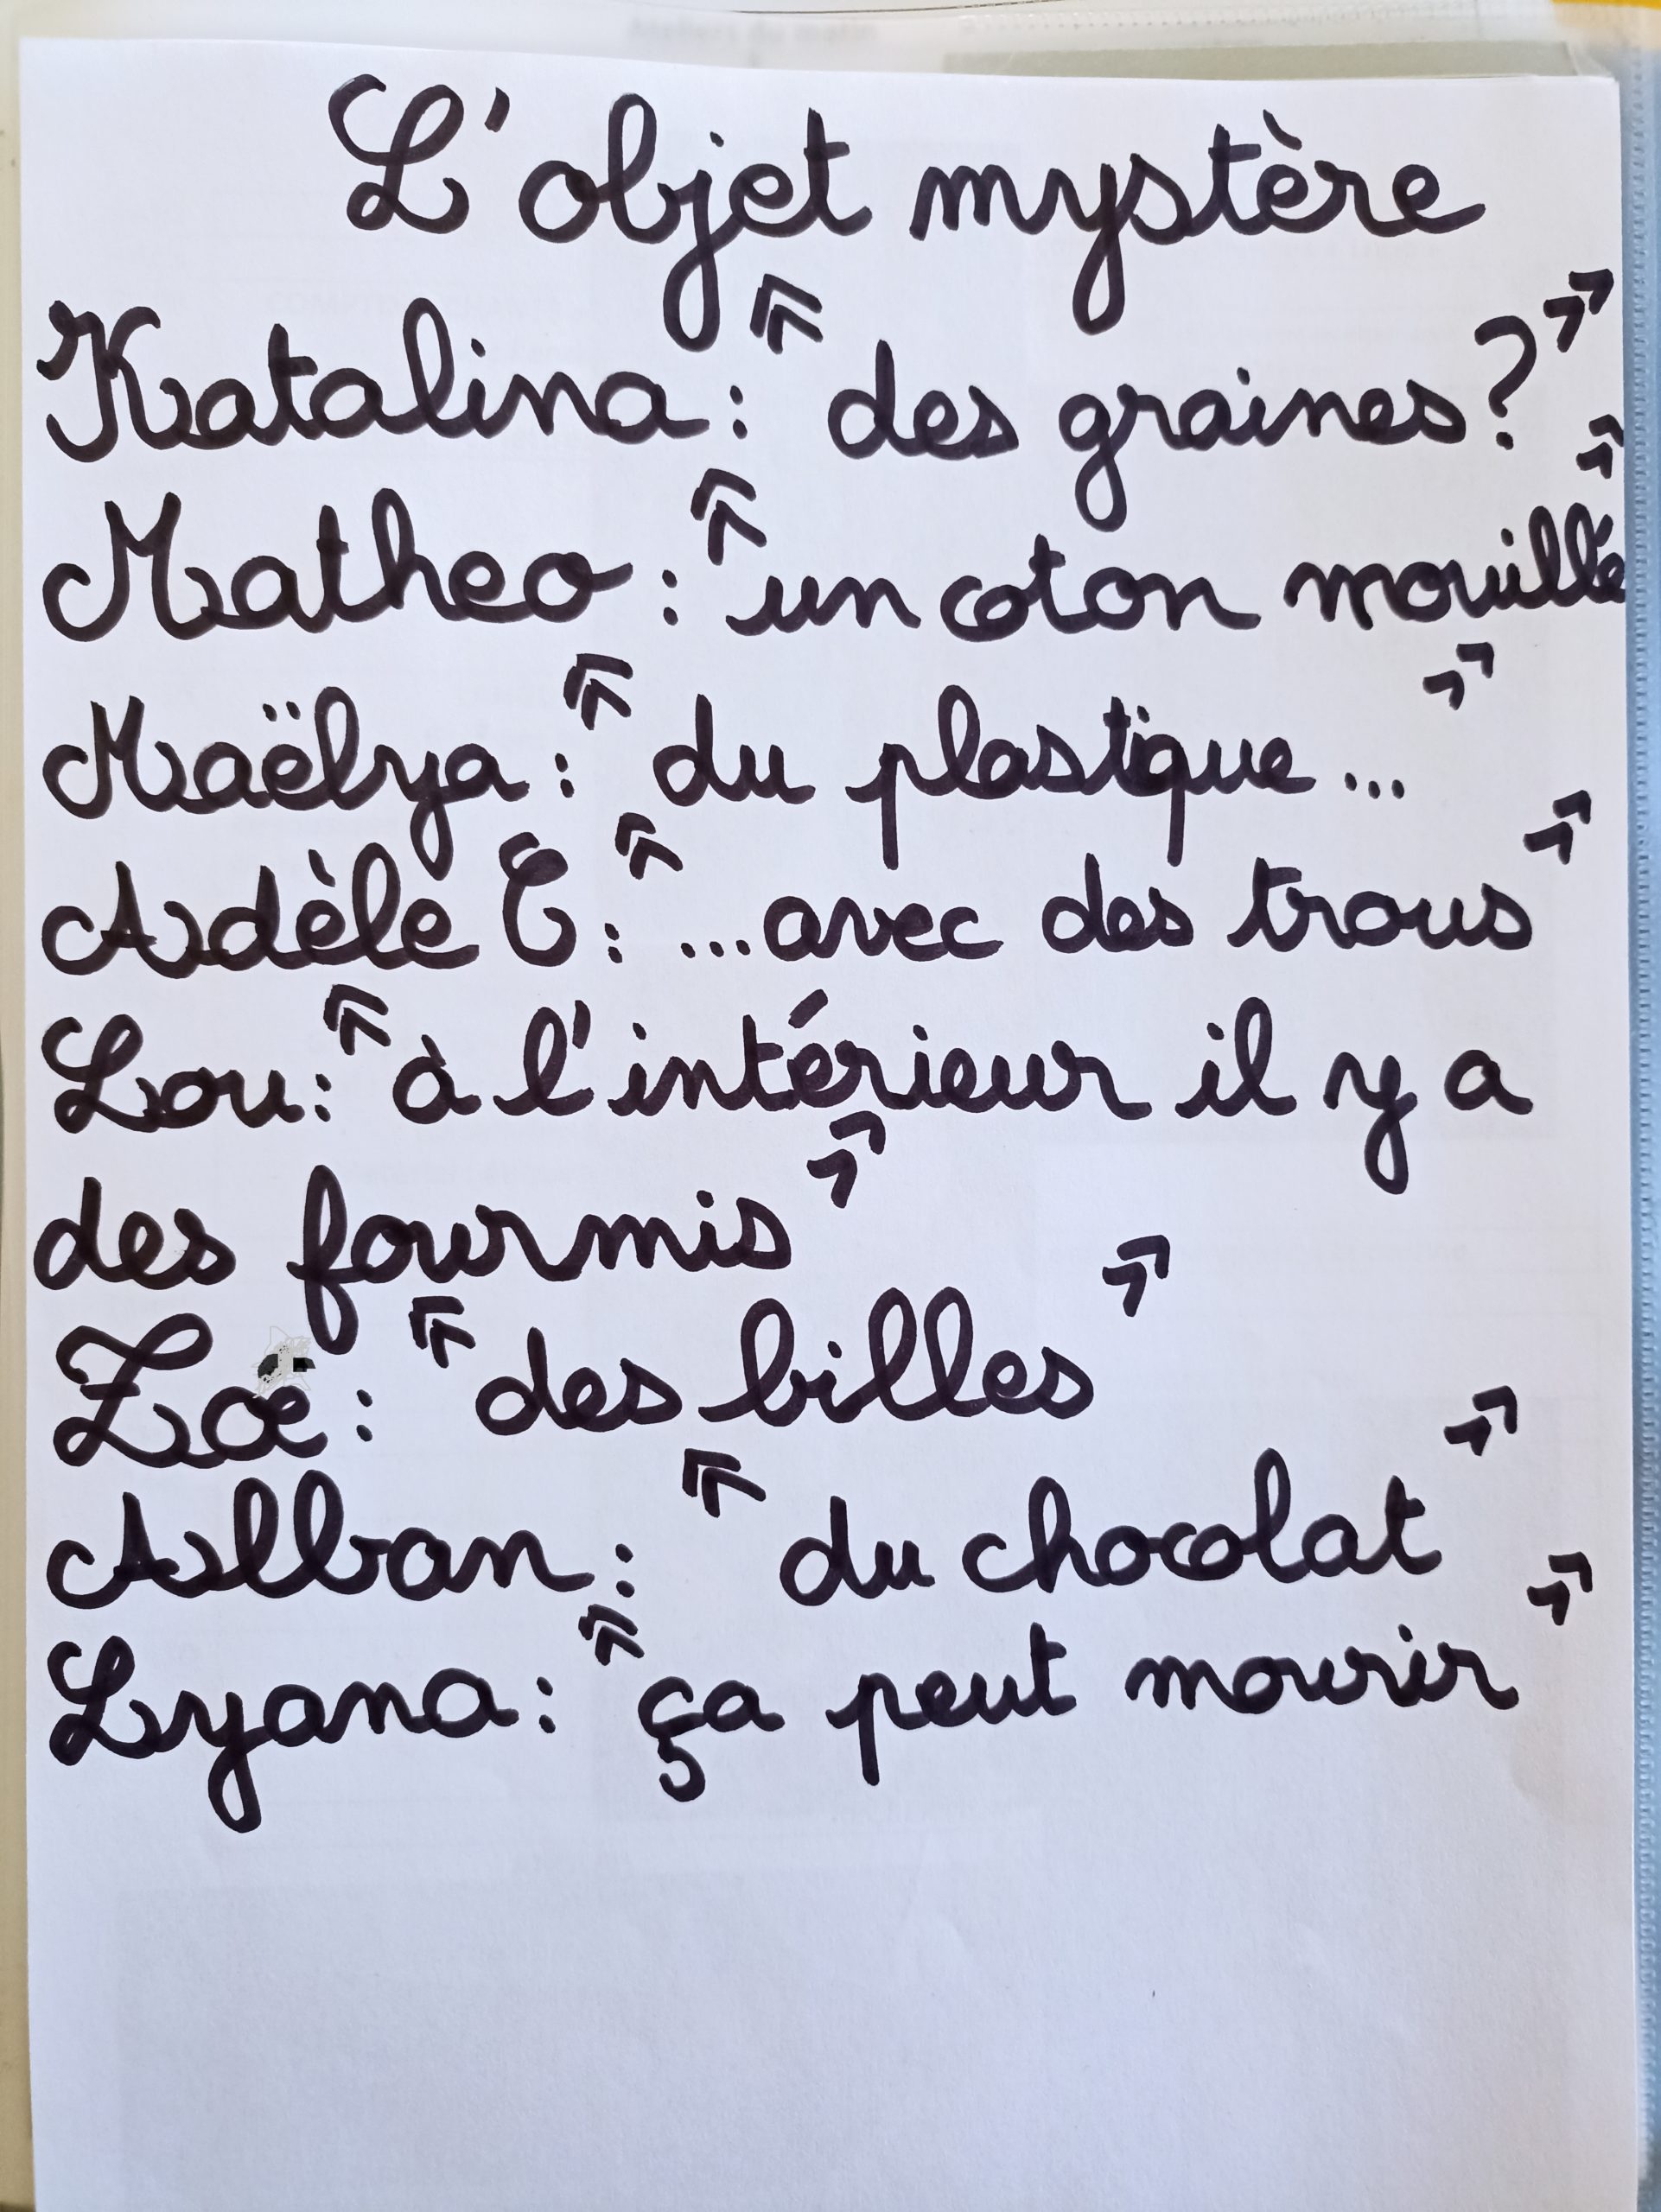 L'objet mystère
Katalina : « des graines ? »
Matheo : « un coton mouillé »
Maëlya : « du plastique ... »
Adèle T : « ... avec des trous »
Lou : « à l'intérieur il y a
des fourmis »
Zoe : « des billes »
Alban : « du chocolat »
Lyana : « ça peut mourir »